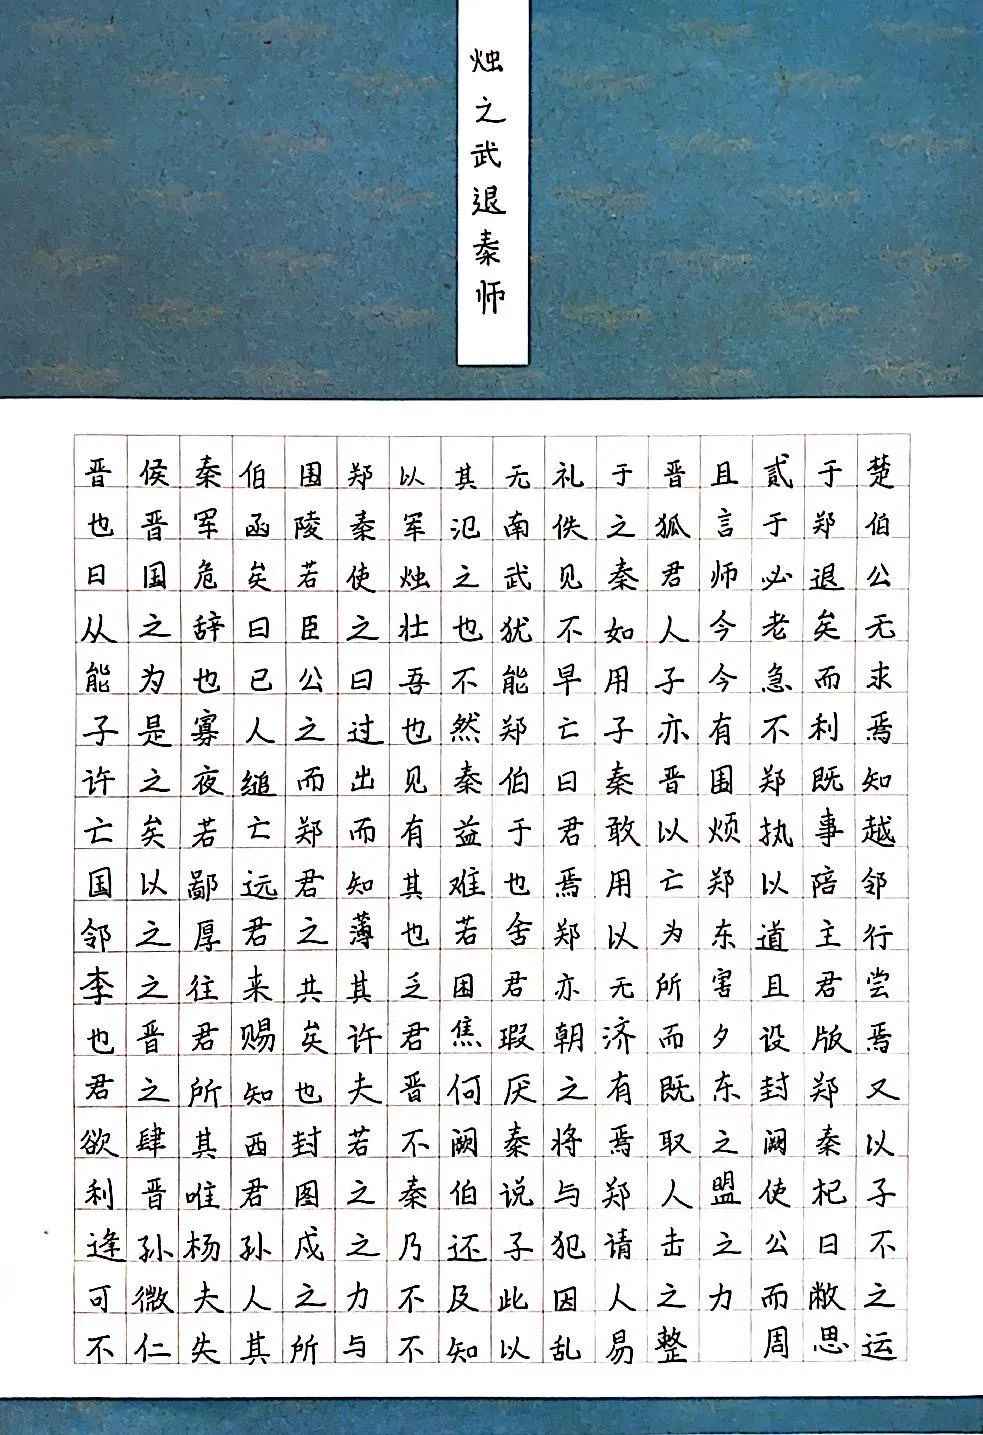 烛之武退秦师
晋侯秦伯围郑以其无礼于晋且贰于楚
也晋军函陵秦军氾南佚之狐言于郑伯
曰国危矣若使烛之武见秦君师必退公
从之辞曰臣之壮也犹不如人今老矣无
能为也已公曰吾不能早用子今急而求
子是寡人之过也然郑亡子亦有不利焉
许之夜缒而出见秦伯曰秦晋围郑既知
亡矣若亡郑而有益于君敢以烦执事越
国以鄙远君知其难也焉用亡郑以陪邻
邻之厚君之薄也若舍郑以为东道主行
李之往来共其乏困君亦无所害且君尝
也晋君赐矣许君焦瑕朝济而夕设版焉
君之所知也夫晋何厌之有既东封郑又
欲肆其西封若不阙秦将焉取之阙秦以
利晋唯君图之秦伯说与郑人盟使杞子
逢孙杨孙戍之乃还子犯请击之公曰不
可微夫人之力不及此因人之力而敝之
不仁失其所与不知以乱易整 周思运